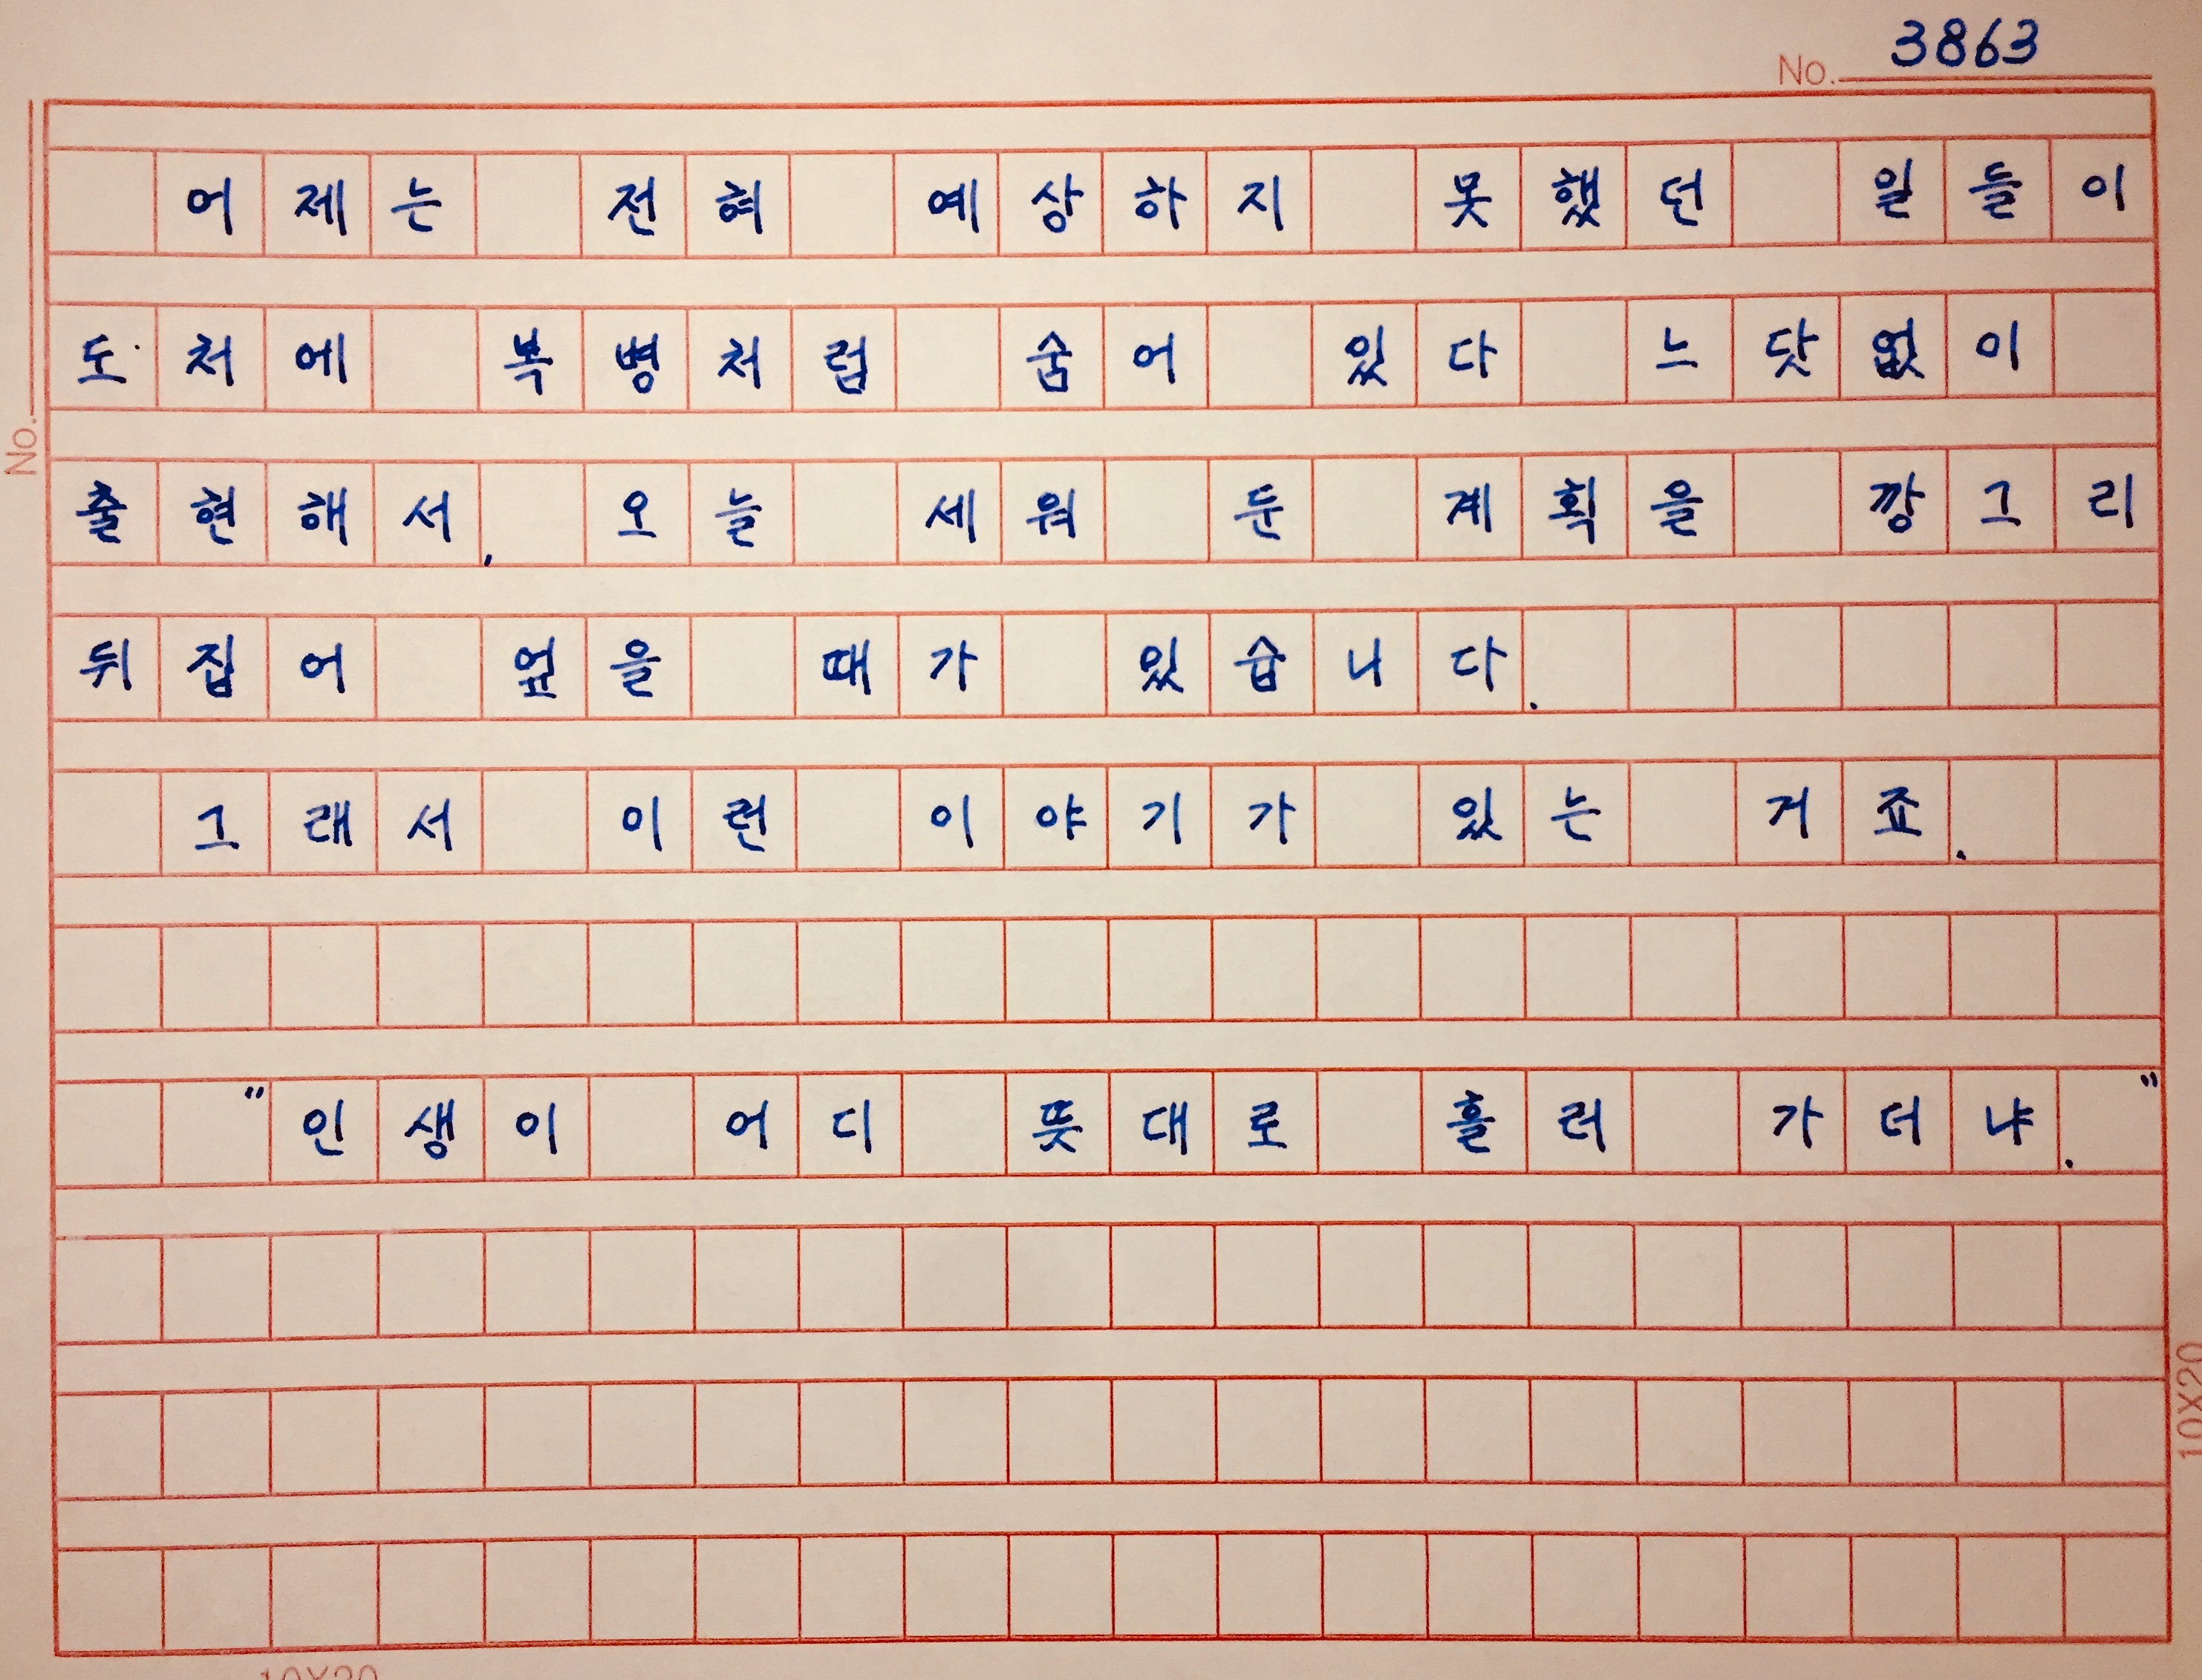 No. 3863
어제는 전혀 예상하지 못했던 일들이
도처에 복병처럼 숨어 있다 느닷없이
출현해서, 오늘 세워 둔 계획을 깡그리
뒤집어 엎을 때가 있습니다.
그래서 이런 이야기가 있는 거죠.
"인생이 어디 뜻대로 흘러 가더냐."
No.
10X20
10X20